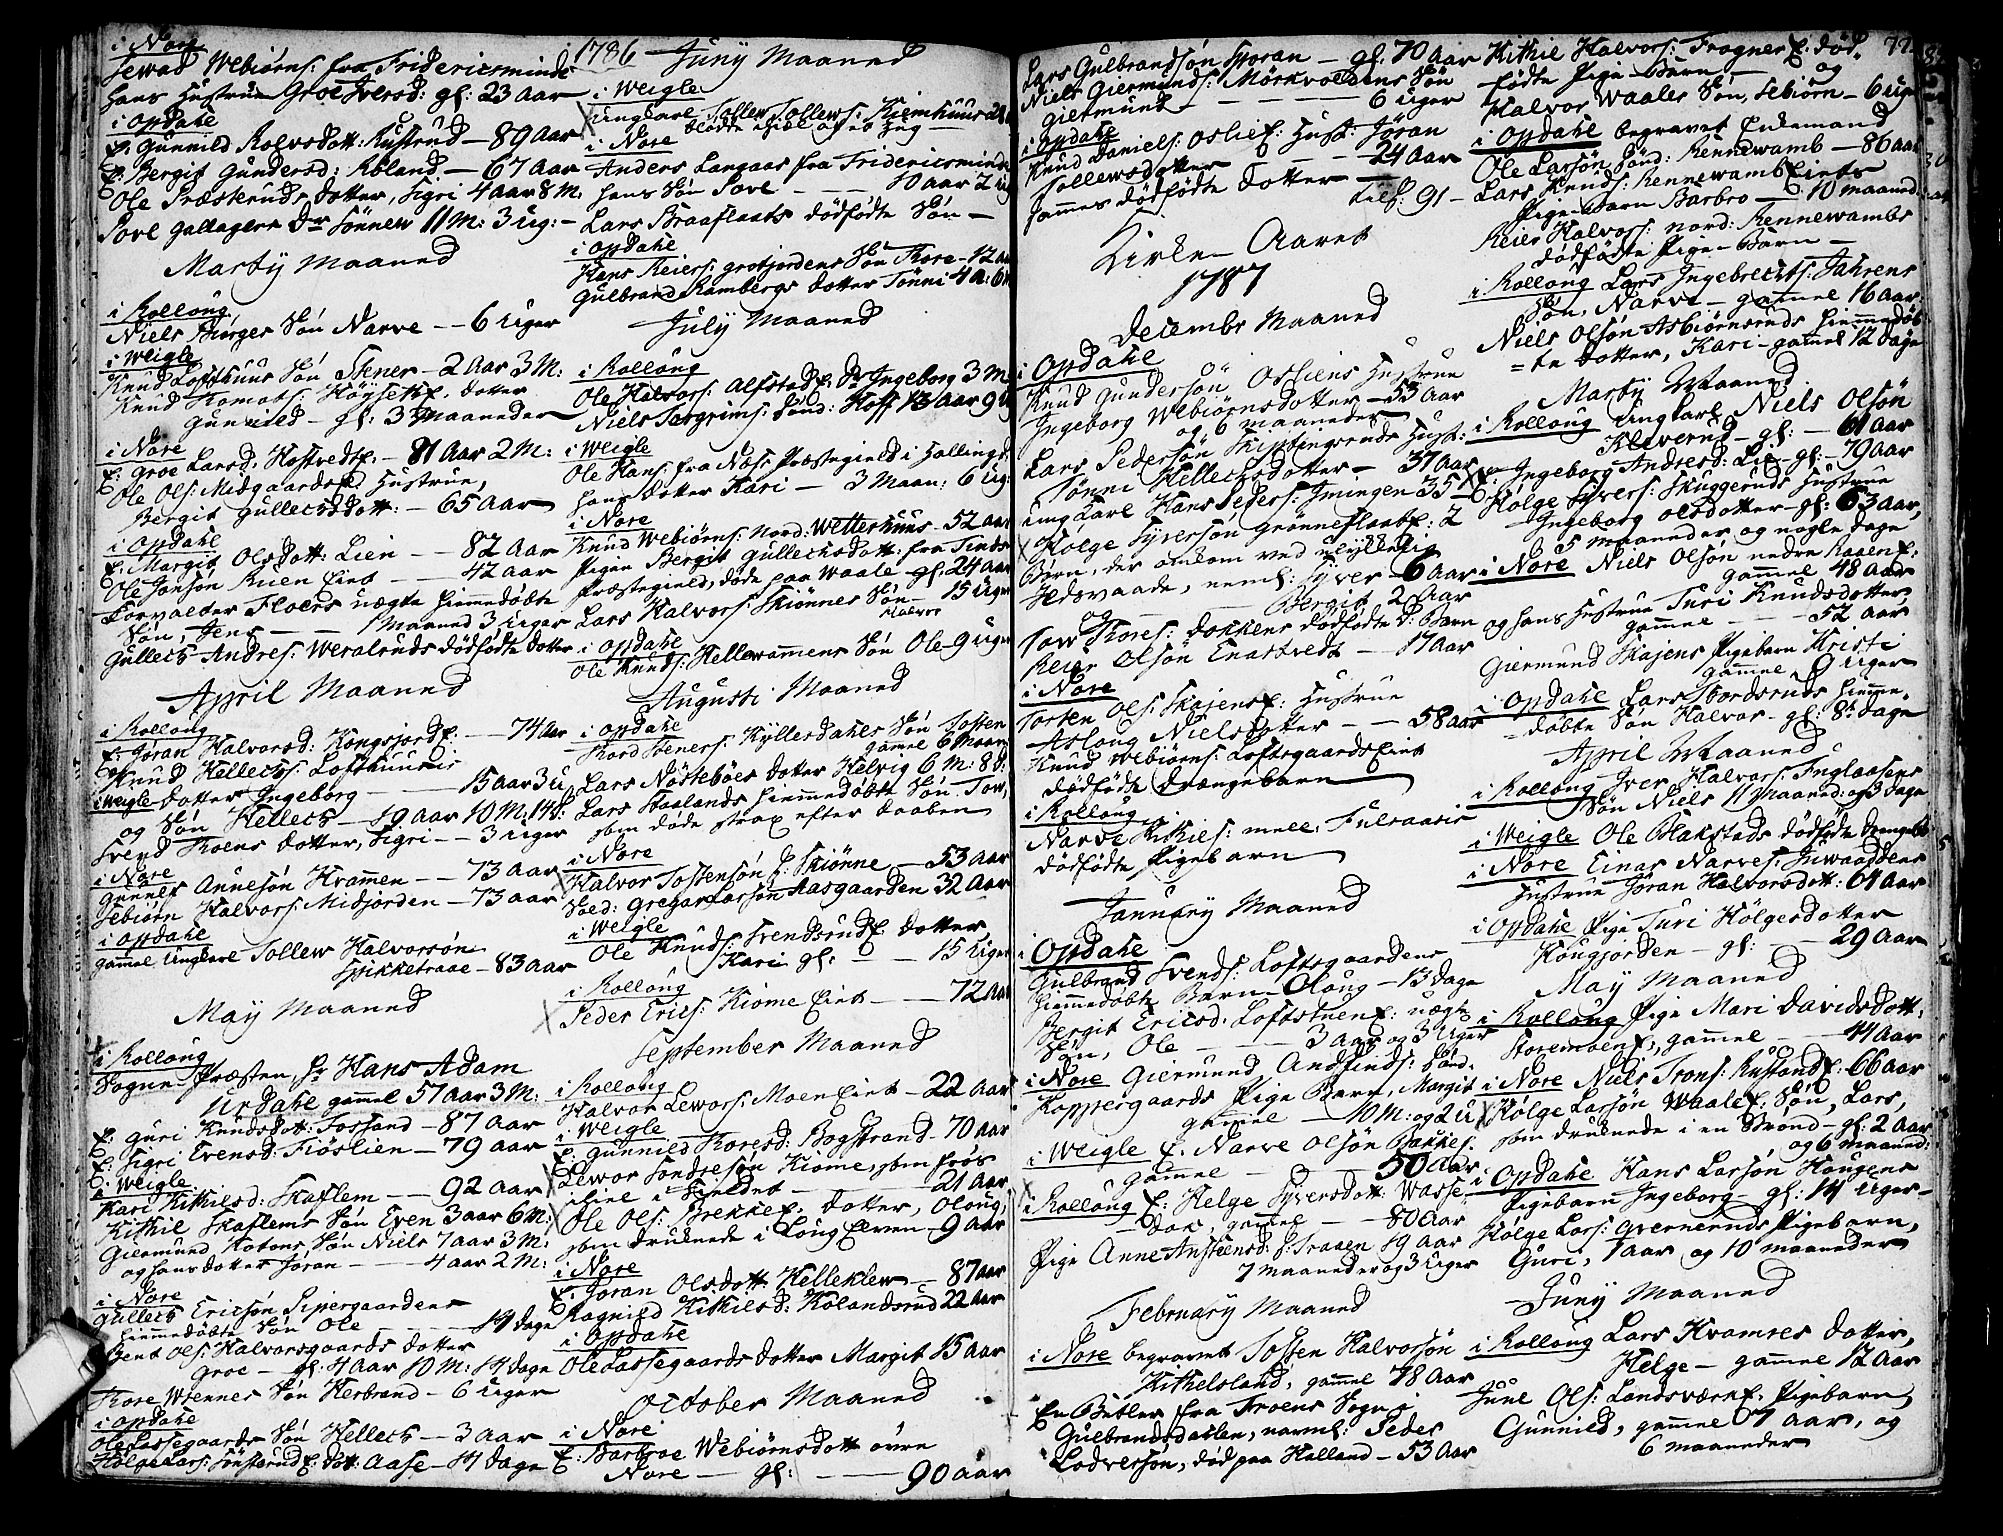 i Nore
Sewad Webiørns: fra Fridericsminde
hans Hustrue Groe Iversd: gl: 23 Aar
i Opdahl
E: Gunnild Rolvsdott: Rustrud — 89 Aar
E: Bergit Gundersd: Røland — 67 Aar
Ole Præskruds dotter, Sigri 4 Aar 8 M.
Tove Gallagers Dr Sønnew 11 M: 3 ug: —
Marty Maaned
i Rollong
Niels Borges Søn Narve — 6 Uger
i Weigle
Knud Lofthuus Søn Stener — 2 Aar 3 M:
Knud dotter
Gunnild — gl: 3 Maaneder
i Nore
E: Groe Larsd. — 81 Aar 2 M:
Ole Ols: Midgaards Hustrue,
Bergit Gullecsdott: — 65 Aar
i Opdahl
E: Margit Olsdott: Lien — 82 Aar
Ole Jonsøn Ruen Eint — 42 Aar
Forvalder Floers uægte hiemmedøbte
Søn, Jens — 1 Maaned 3 Uger
Gullecs Andres: Weralruds dødfødte dotter
April Maaned
i Rollong
E: Jøran Halvorsd: Kongsjord — 74 Aar
Knud Hellecs: Lofthuus
i Weigle dotter Ingeborg — 15 Aar 3 u
og Søn Hellecs — 19 Aar 10 M. 14 d:
Svend Roens dotter, Sigri — 3 Uger
i Nore
Gunner Annesøn Kramen — 73 Aar
Sebiørn Halvors: Midjorden — 73 Aar
i Opdahl
gammel Ungkarl Tollew Halvorsøn
Spikketraae — 83 Aar
May Maaned
i Rollong
Sogne-Præsten, Hr Hans Adam
Urdahl gammel 57 Aar 3 M:
E: Guri Knudsdott: Fossand — 87 Aar
E: Sigri Evensd: Fiøslien — 79 Aar
i Weigle
Kari Kithilsd: Skaflem — 92 Aar
Kithil Skaflems Søn Even 3 Aar 6 M:
Giermund Kotons Søn Niels 7 Aar 3 M:
og hans dotter Jøran — 4 Aar 2 M:
i Nore
Gullecs Ericsøn Sipergaardens
hiemmedøbte Søn Ole — 14 dage
Bent Ols: Halvorsgaards dotter
Groe — gl: 4 Aar 10 M: 14 dage
Tore Wennes Søn Herbrand — 6 Uger
i Opdahl
Ole Lassegaards Søn Hellecs — 3 Aar
Holge Lars: dott: Aase — 14 dage
1786 Juny Maaned
i Weigle
Ungkarl Tollew Tollews:
blødte ihiel af et Hug —
i Nore
Anders Langaas fra Fridericsminde
hans Søn Tove — 10 Aar 2
Lars Braaflaats dødfødte Søn —
i Opdahl
Hans Reiers: grotjordens Søn Tore — 12
Gulbrand Rambergs dotter Tønni 4 A: 6
July Maaned
i Rollong
Ole Halvors: Alfstad Dr Ingeborg 3 M
Niels Torgrims: Sønd: Hoff 13 Aar 9
i Weigle
Ole Hans: fra Næs Præstegield i Hallingd:
hans dotter Kari — 3 Maan: 6
i Nore
Knud Webiørns: Nord: Wetterhuus — 52 Aar
Pigen Bergit Gullechsdott: fra Tinds
Præstegield, døde paa Waale gl: 24 Aar
Lars Halvors: Skiønnes Søn — 15 Uger
Halvor
i Opdahl
Ole Knuds: Hellewammens Søn Ole — 9 uger
Augusti Maaned
i Opdahl
Tord Steners: Kyllersdahls Søn Tosten
gamel 6 Maan
Lars Nøstebøes dotter Helvig 6 M: 8 d:
Lars Staalands hiemmedøbte Søn Tow,
som døde strax efter daaben
i Nore
Halvor Tostensøn E: Skiønne — 53 Aar
Sold: Gregar Larsøn Aasgaarden 32 Aar
i Weigle
Ole Knuds: Svendsrud dotter,
Kari gl: — 15 Uger
i Rollong
Peder Erics: Kiome Eint — 72 Aar
September Maaned
i Rollong
Halvor Lewors: Moen Eint — 22 Aar
i Weigle
E: Gunnild Toresd: Bogstrand — 70 Aar
Lewor Sondresøn Kiome, som frøs
ihiel i Fieldet — 21 Aar
Ole Ols: Brekke dotter, Oloug,
som druknede i Long Elven — 9 Aar
i Nore
E: Jøran Olsdott: Helleklew — 87 Aar
Ragnild Kithilsd: Kolandsrud 22 Aar
i Opdahl
Ole Lassegaards dotter Margit 15 Aar
October Maaned
i Nore
E: Barbroe Webiørnsdott øvre
Nore — gl: — 90 Aar
Lars Gulbrandsøn Sporan — gl: 70 Aar
Niels Giermunds: Mørkvoldens Søn
Gietmund — 6 Uger
i Opdahl
Knud Daniels: Oslie Hust: Jøran
Tollewsdotter — 24 Aar
Sammes dødfødte dotter —
Tils: 91 —
Kirke-Aaret
1787
Decembr Maaned
i Opdahl
Knud Gundersøn Osliens Hustrue
Ingeborg Webiørnsdotter — 53 Aar
og 6 maaneder
Lars Pedersøn Skiptingruds Hust:
Tønni Hellechsdotter — 37 Aar
Ungkarl Hans Peders: Imingen 35
Holge Syversøn Grønneflaat: 2
Børn, der omkom ved ulykkelig
Ildsvaade, neml: Syver — 6 Aar
og — Bergit 2 Aar
Tow Tores: Dokkens dødfødte D: Barn
Reier Olsøn Enastvedt — 17 Aar
i Nore
Torsten Ols: Skajens Hustrue
Aslong Nielsdotter — 58 Aar
Knud Webiørns: Loftsgaards Eint
dødfødte drengebarn
i Rollong
Narve Kithils: mell: Fulsaasis
dødfødte Pigebarn
January Maaned
i Opdahl
Gulbrand Svends: Loftsgaardens
hiemmedøbte Barn Oloug — 13 dage
Bergit Ericsd: Loftstuen: uægte
Søn, Ole — 3 Aar og 3 Uger
i Nore Giermund Andfinds: Sønd.
Koppergaards Pige Barn, Margit
gammel — 10 M: og 2 u
i Weigle E. Narve Olsøn Bakke
gamel — 50 Aar
i Rollong E: Helge Syversdott: Wasse
dok, gamel — 80 Aar
Pige Anne Anstensd: P: Traaen 19 Aar
7 maaneder og 3 Uger
February Maaned
i Nore begravet Tosten Halvorsøn
Kithelsland, gamel 78 Aar
En Betler fra Froens Sogn i
Gulbrandsdalen, navnl: Peder
Lodversøn, død paa Halland — 53 Aar
77.
Kithil Halvors: Frogner E: død
fødte Pige-Barn — og
Halvor Waales Søn, Sebiørn — 6 uger
i Opdahl begravet Enkemand
Ole Larsøn Sønd: Rennewamb — 86 Aar
Lars Knuds: Rennewamb Eints
Pige-Barn Barbro — 10 maaned:
Reier Halvors: nord: Rennewambs
dødfødte Pige-Barn —
i Rollong Lars Ingebrechts: Jahrens
Søn, Narve — gamel 16 Aar
Niels Olsøn Asbiørnsruds hiemmedøb-
=te dotter, Kari — gamel 12 dage
Marty Maaned
i Rollong Ungkarl Niels Olsøn
Kleverud — gl: — 61 Aar
E: Ingeborg Andresd: Lie — gl: — 79 Aar
Holge Syvers: Skuggeruds Hustrue
Ingeborg Olsdotter — gl: 63 Aar,
5 maaneder og nogle dage
i Nore Niels Olsøn nedre Raaen
gammel 48 Aar
og hans Hustrue Turi Knudsdotter
gammel — 52 Aar
Giermund Skajens Pigebarn Kristi
gammel 9 Uger
i Opdahl Lars Stordsruds hiemme-
=døbte Søn Halvor — gl: 8 dage
April Maaned
i Rollong Iver Halvors: Inglaasens
Søn Niels 11 Maaned: og 3 dage
i Weigle Ole Blakstads dødfødte drengeb:
i Nore Einar Narves: Juvaadens
Hustrue Jøran Halvorsdott: 64 Aar
i Opdahl Pige Turi Holgesdotter
Hougjorden — gl: — 29 Aar
May Maaned
i Rollong Pige Mari Davidsdott:
Storemoen, gammel — 44 Aar
i Nore Niels Trons: Rustand: 66 Aar
Holge Larsøn Waale Søn, Lars,
som druknede i en Brønd — gl: 2 Aar
og 6 maaned:
i Opdahl Hans Larsøn Hougens
Pigebarn Ingeborg — gl: 14 Uger —
Holge Lars: Gvernruds Pigebarn,
Guri, 1 Aar og 10 maaneder
Juny Maaned
i Rollong Lars Kvamses dotter,
Helge — gamel 12 Aar
June Ols: Landsværk Pigebarn
Gunnild, gammel 7 Aar, og
6 maaneder